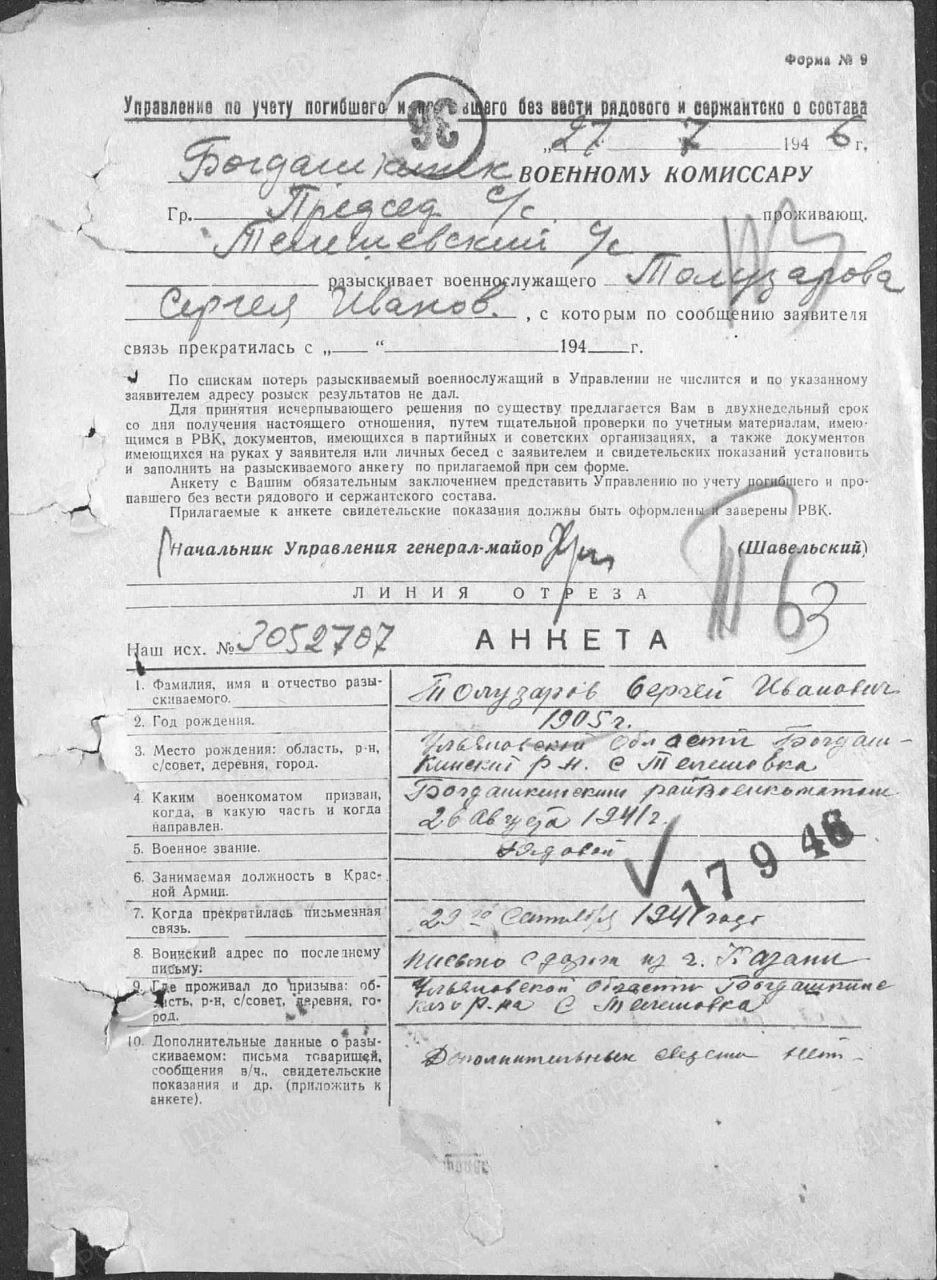 Форма № 9
Управление по учету погибшего и вшего без вести рядового и сержантско о состава
36
„27 7 1946 г.
Богдашкинск ВОЕННОМУ КОМИССАРУ
Гр. Председ с/с проживающ.
Телешевский с/с
разыскивает военнослужащего Толузарова
Сергея Иванов. , с которым по сообщению заявителя
связь прекратилась с „ “ 194 г.
По спискам потерь разыскиваемый военнослужащий в Управлении не числится и по указанному
заявителем адресу розыск результатов не дал.
Для принятия исчерпывающего решения по существу предлагается Вам в двухнедельный срок
со дня получения настоящего отношения, путем тщательной проверки по учетным материалам, имею-
щимся в РВК, документов, имеющихся в партийных и советских организациях, а также документов
имеющихся на руках у заявителя или личных бесед с заявителем и свидетельских показаний установить
и заполнить на разыскиваемого анкету по прилагаемой при сем форме.
Анкету с Вашим обязательным заключением представить Управлению по учету погибшего и про-
павшего без вести рядового и сержантского состава.
Прилагаемые к анкете свидетельские показания должны быть оформлены и заверены РВК.
Начальник Управления генерал-майор (Шавельский)
ЛИНИЯ ОТРЕЗА
Наш исх. № 3052707 АНКЕТА
1. Фамилия, имя и отчество разы-
скиваемого.
Толузаров Сергей Иванович
2. Год рождения.
1905 г.
3. Место рождения: область, р-н,
с/совет, деревня, город.
Ульяновский области Богдаш-
кинский р-н. с Телешовка
4. Каким военкоматом призван,
когда, в какую часть и когда
направлен.
Богдашкинским райвоенкоматом
26 Августа 1941 г.
5. Военное звание.
Рядовой
17 9 46
6. Занимаемая должность в Крас-
ной Армии.
7. Когда прекратилась письменная
связь.
29 го Сентября 1941 года
8. Воинский адрес по последнему
письму:
письмо с дороги из г. Казани
9. Где проживал до призыва: об-
ласть, р-н, с/совет, деревня, го-
род.
Ульяновской области Богдашкинс
кого р-на с Телешовка
10. Дополнительные данные о разы-
скиваемом: письма товарищей,
сообщения в/ч., свидетельские
показания и др. (приложить к
анкете).
Дополнительных сведений нет-